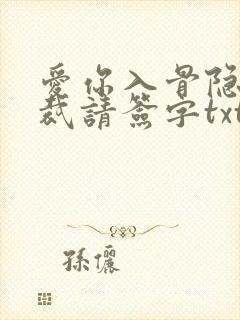 愛你入骨隐
裁請簽字txt
孫儷